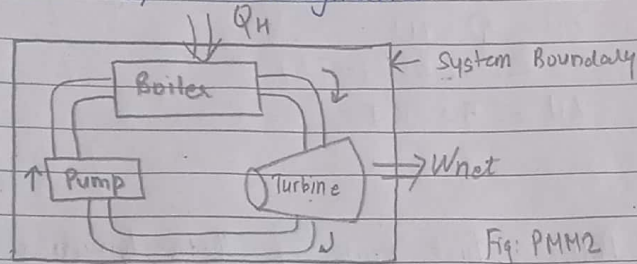 QH
← System Boundary
Boiler
Pump
Turbine
Wnet
Fig: PMM2